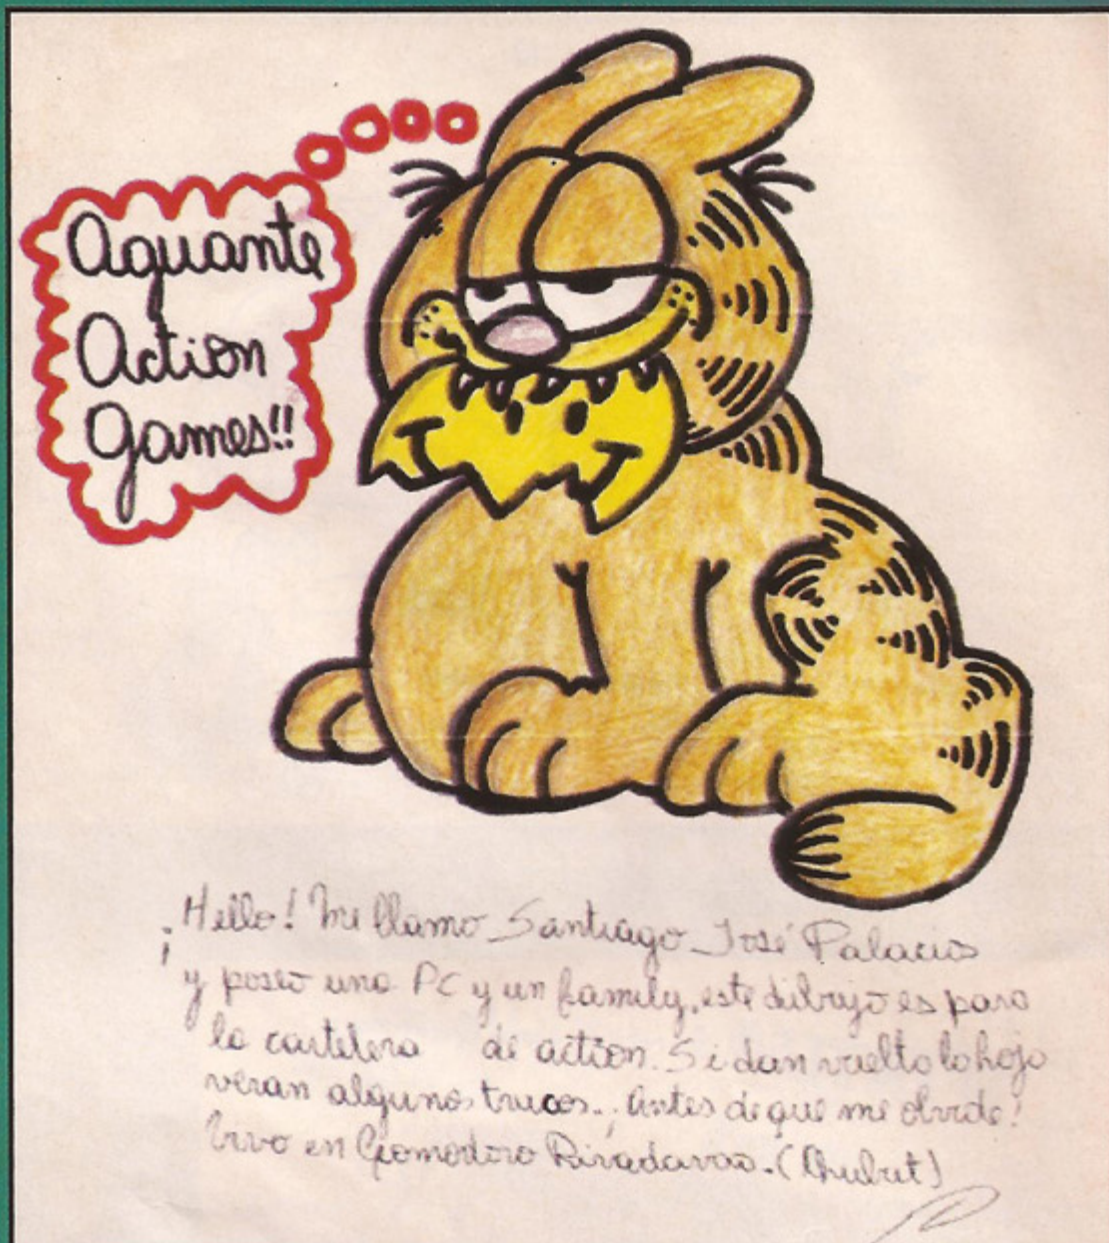 Aguante
Action
games!!
¡Hello! Me llamo Santiago José Palacios
y poseo una PC y un family, este dibujo es para
la cartelera de action. Si dan vuelta la hoja
veran algunos trucos. ¡Antes de que me olvide!
Vivo en Comodoro Rivadavia. (Chubut)